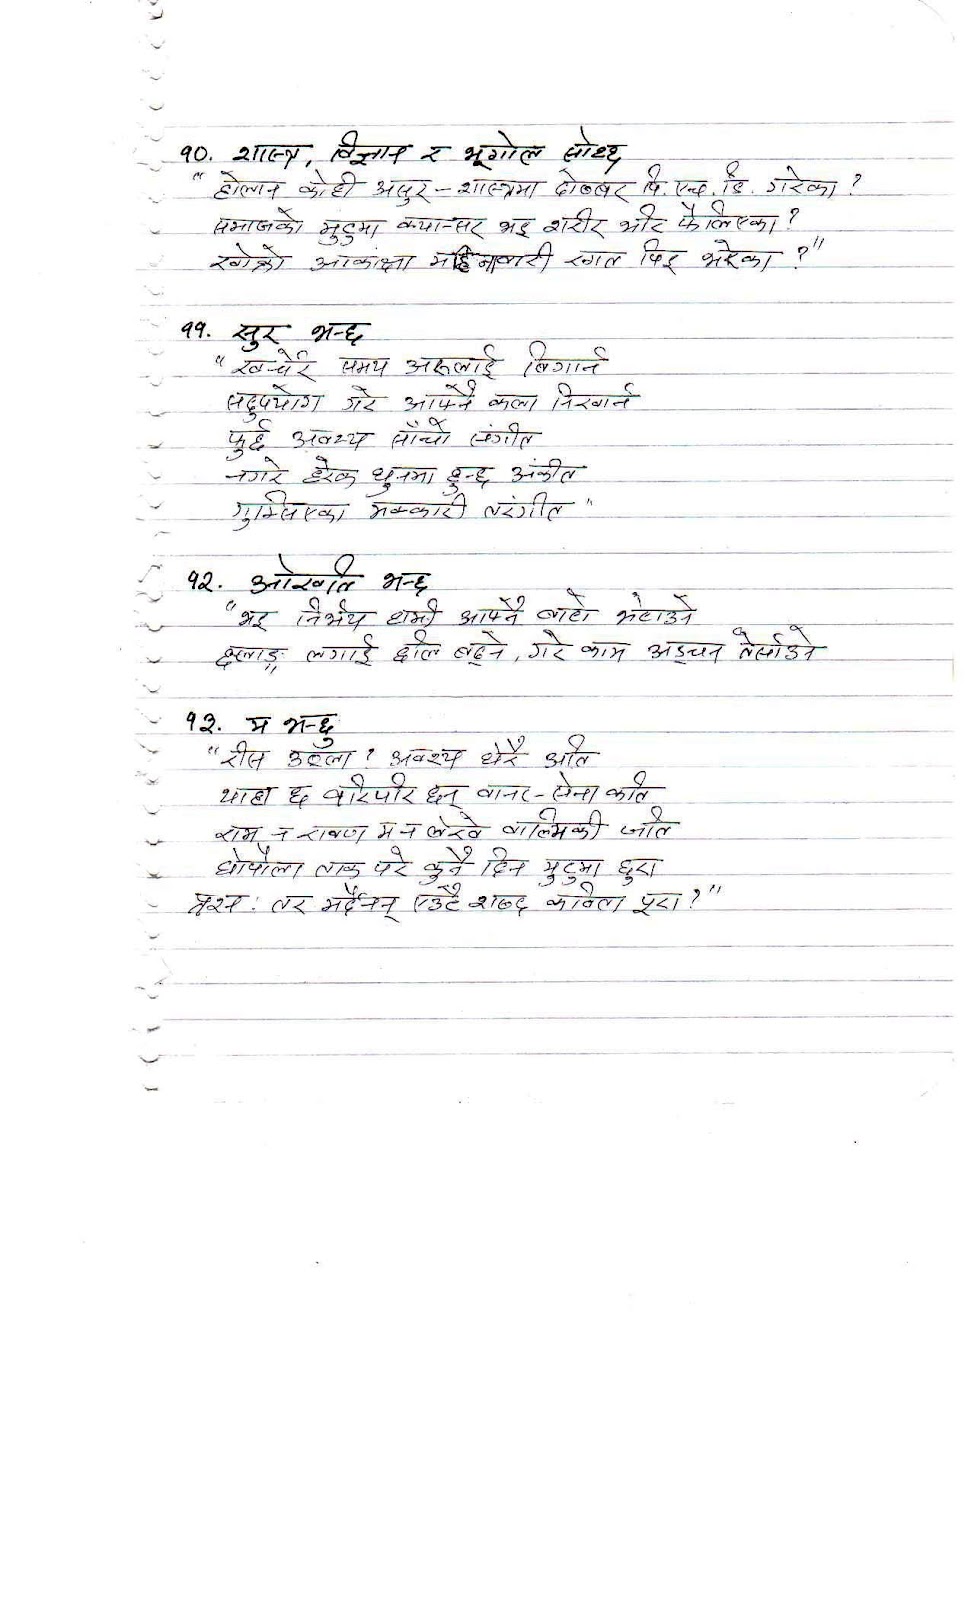 १०. शास्त्र, विज्ञान र भूगोल सोध्छ
"होलान कोही असुर-शास्त्रमा दोब्बर पि. एच. डि. गरेका ?
समाजको मुटुमा क्यान्सर भइ शरीर भरि फैलिएका ?
आकांक्षा महिनावारी रगत पिइ भरेका ?"
११. सुर भन्छ
"खर्चेर समय अरूलाई बिगार्न
सदुपयोग गरे आफ्नै कला निखार्न
फुर्छ अवश्य साँचो संगीत
नगरे हरेक धुनमा हुन्छ अंकीत
गुम्सिएका मक्कारी तरंगीत"
१२. ओखति भन्छ
"भइ निर्भय धामी आफ्नै बाटो भेटाउने
छलाङ् लगाई होल बढ्ने, गरे काम अड्चन तेर्साउने
"
१३. म भन्छु
"रीस उठ्ला ? अवश्य धेरै अति
थाहा छ वरिपरि छन् वानर-सेना कति
राम न रावण म न लेख्ने वाल्मिकी जाति
धोपौला ताक परे कुनै दिन मुटुमा छुरा
प्रश्न : तर मर्दैनन् एउटै शब्द कविता पूरा ?"